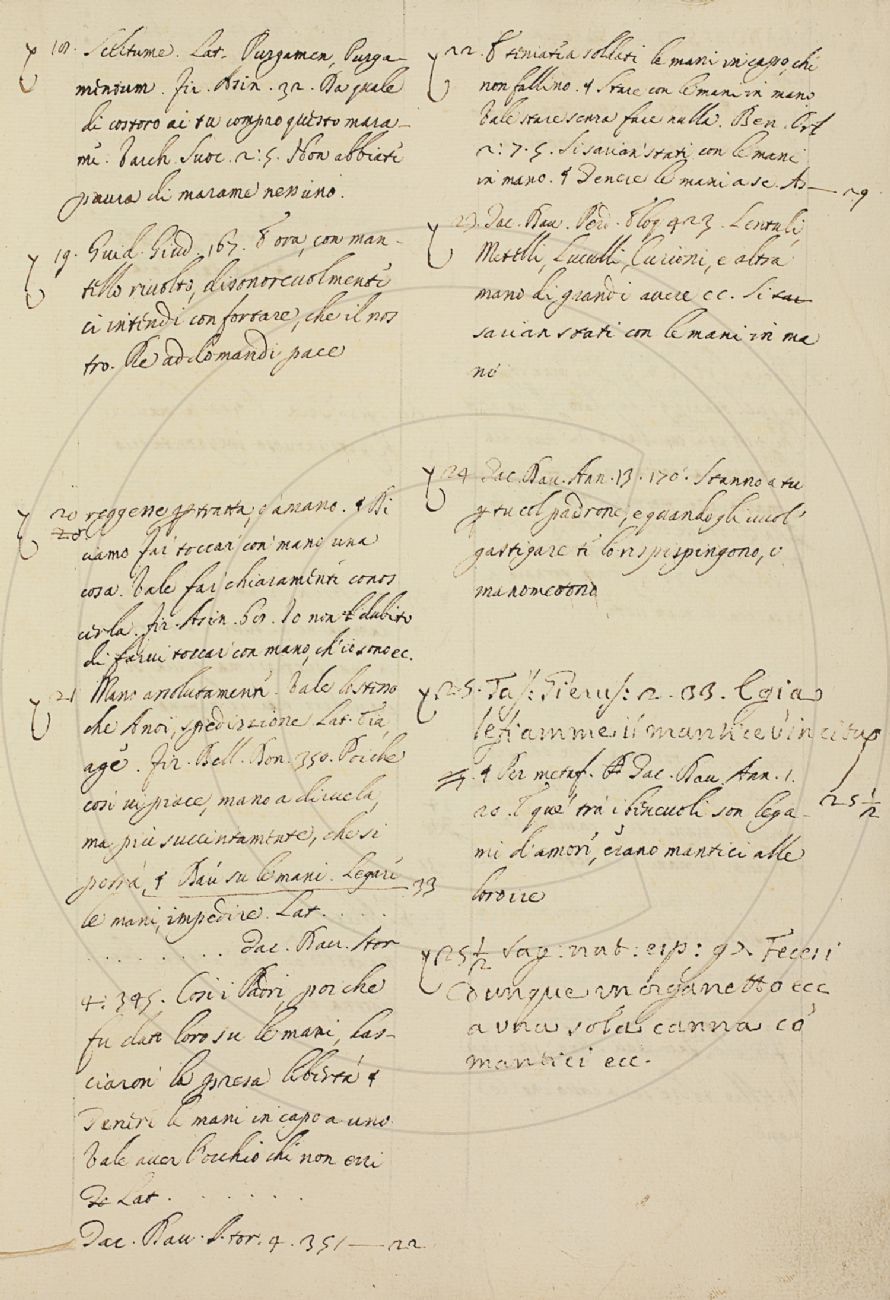 18. Scelitume. Lat. Purgamen, Purga-
mentum. Fir. Asin. 32. Da quale
di costoro ai tu compro questo mara-
me. Varch. Suoc. 2: 5. Non abbiate
paura di marame nessuno.
19. Guid. Giud. 167. E ora, con man-
tello rivolto, disonorevolmente
ci intendi confortare, che il nos
tro Re addomandi pace
20 reggere, tratta, a mano. ¶ Di
ciamo far toccar con mano una
cosa. Vale far chiaramente conos
cerla. Fir. Asin. 60. Io non dubito
di farvi toccar con mano, ch'ie sono ec.
21 Mano assolutamente. Vale lestino
che Anoi, spedizione Lat. Eia,
age. Fir. Bell. Don. 350. Poiche
così vi piace, mano a dirvela,
ma più succintamente, che si
potrà, ¶ Dar su le mani. Legare 33
le mani, impedire. Lat. . . . .
. . . . . . . . Tac. Dav. Stor
4: 345. Così i Padri, poi che
fu dato loro su le mani, las-
ciaron la presa libertà ¶
Tenere le mani in capo a uno
Vale aver l'occhio che non erri
Lat. . . . . . . .
Tac. Dav. Stor. 4. 351 — 22
22. E teniate a soldati le mani in capo, che
non fallino. ¶ Stare con le mani in mano
Vale stare senza fare nulla. Ben. Orl
2: 7. 5. Si sarian stati con le mani
in mano. ¶ Tenere le mani a se. A — 29
23. Tac. Dav. Perd. Eloq 423. Lentuli
Metelli, Luculli, Curioni, e altra
mano di grandi avere ec. Si
sarian stati con le mani in ma
no
24 Tac. Dav. Ann. 13. 170. Stanno a tu
per tu col padrone, e quando gli vuol'
gastigare te lo rispingono, o
manomettono
25. Tass: Gierus: 2. 33. E già
le fiamme il mantice
¶ Per metaf. Tac. Dav. Ann. 1.
20. E que' tra i bincuoli son lega- 25 1/2
mi d'amori, erano mantici alle
loro ire
25 1/2 Sag: nat: esp: 97 Fecesi
dunque un organetto ecc
a una sola canna co'
mantici ecc.